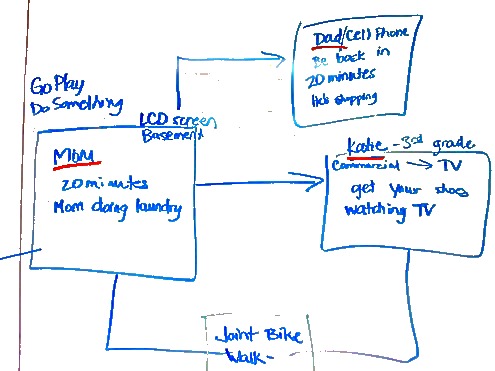 Dad/Cell Phone
Be back in
20 minutes
shopping
Go Play
Do Something
LCD screen
Basement
Mom
20 minutes
Mom doing laundry
Katie - 3rd grade
Commercial → TV
get your shoes
watching TV
Joint Bike
Walk -